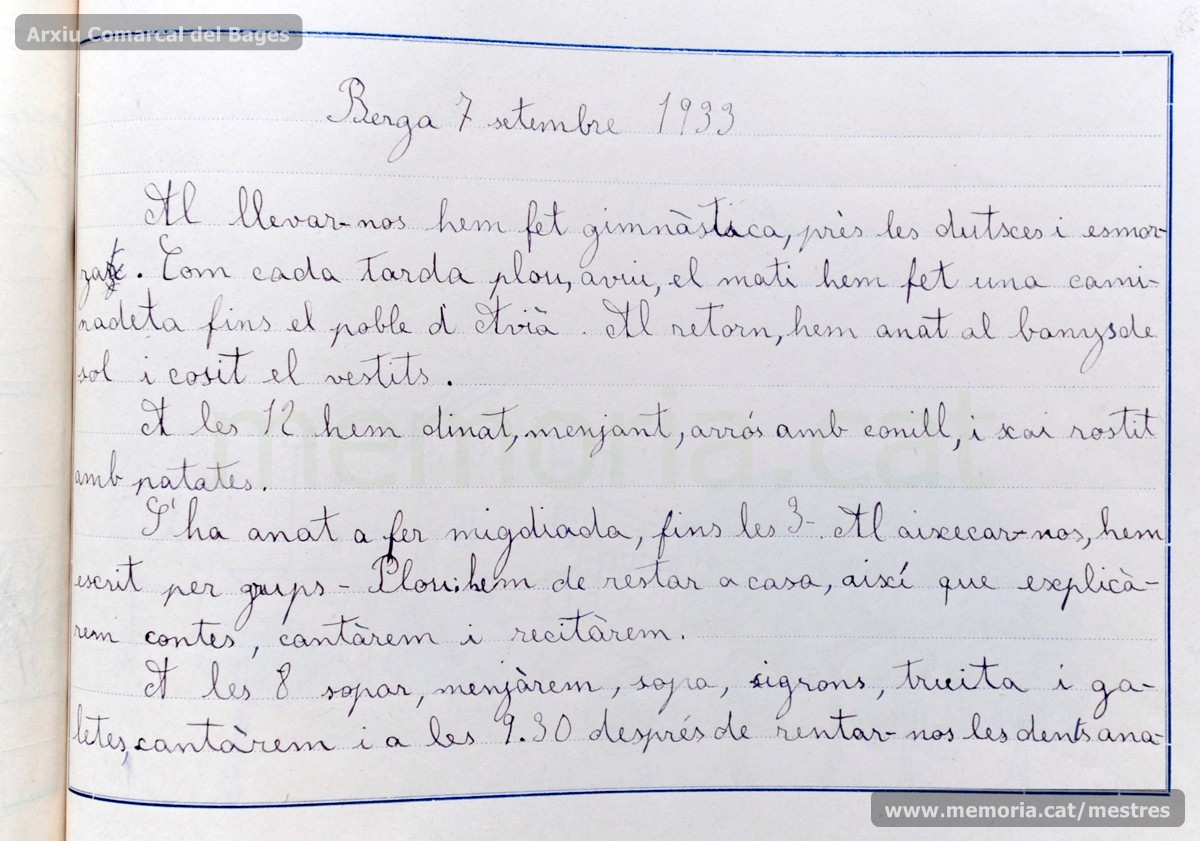 Arxiu Comarcal del Bages
Berga 7 setembre 1933
Al llevar-nos hem fet gimnàstica, près les dutxes i esmor-
zat. Com cada tarda plou, aviu, el mati hem fet una cami-
nadeta fins el poble d'Avià. Al retorn, hem anat al banys de
sol i cosit el vestits.
A les 12 hem dinat, menjant, arrós amb conill, i xai rostit
amb patates.
S'ha anat a fer migdiada, fins les 3-. Al aixecar-nos, hem
escrit per grups - Plou: hem de restar a casa, així que explicà-
rem contes, cantàrem i recitàrem.
A les 8 sopar, menjàrem, sopa, sigrons, truita i ga-
letes, cantàrem i a les 9.30 després de rentar-nos les dents ana-
memoria.cat
www.memoria.cat/mestres